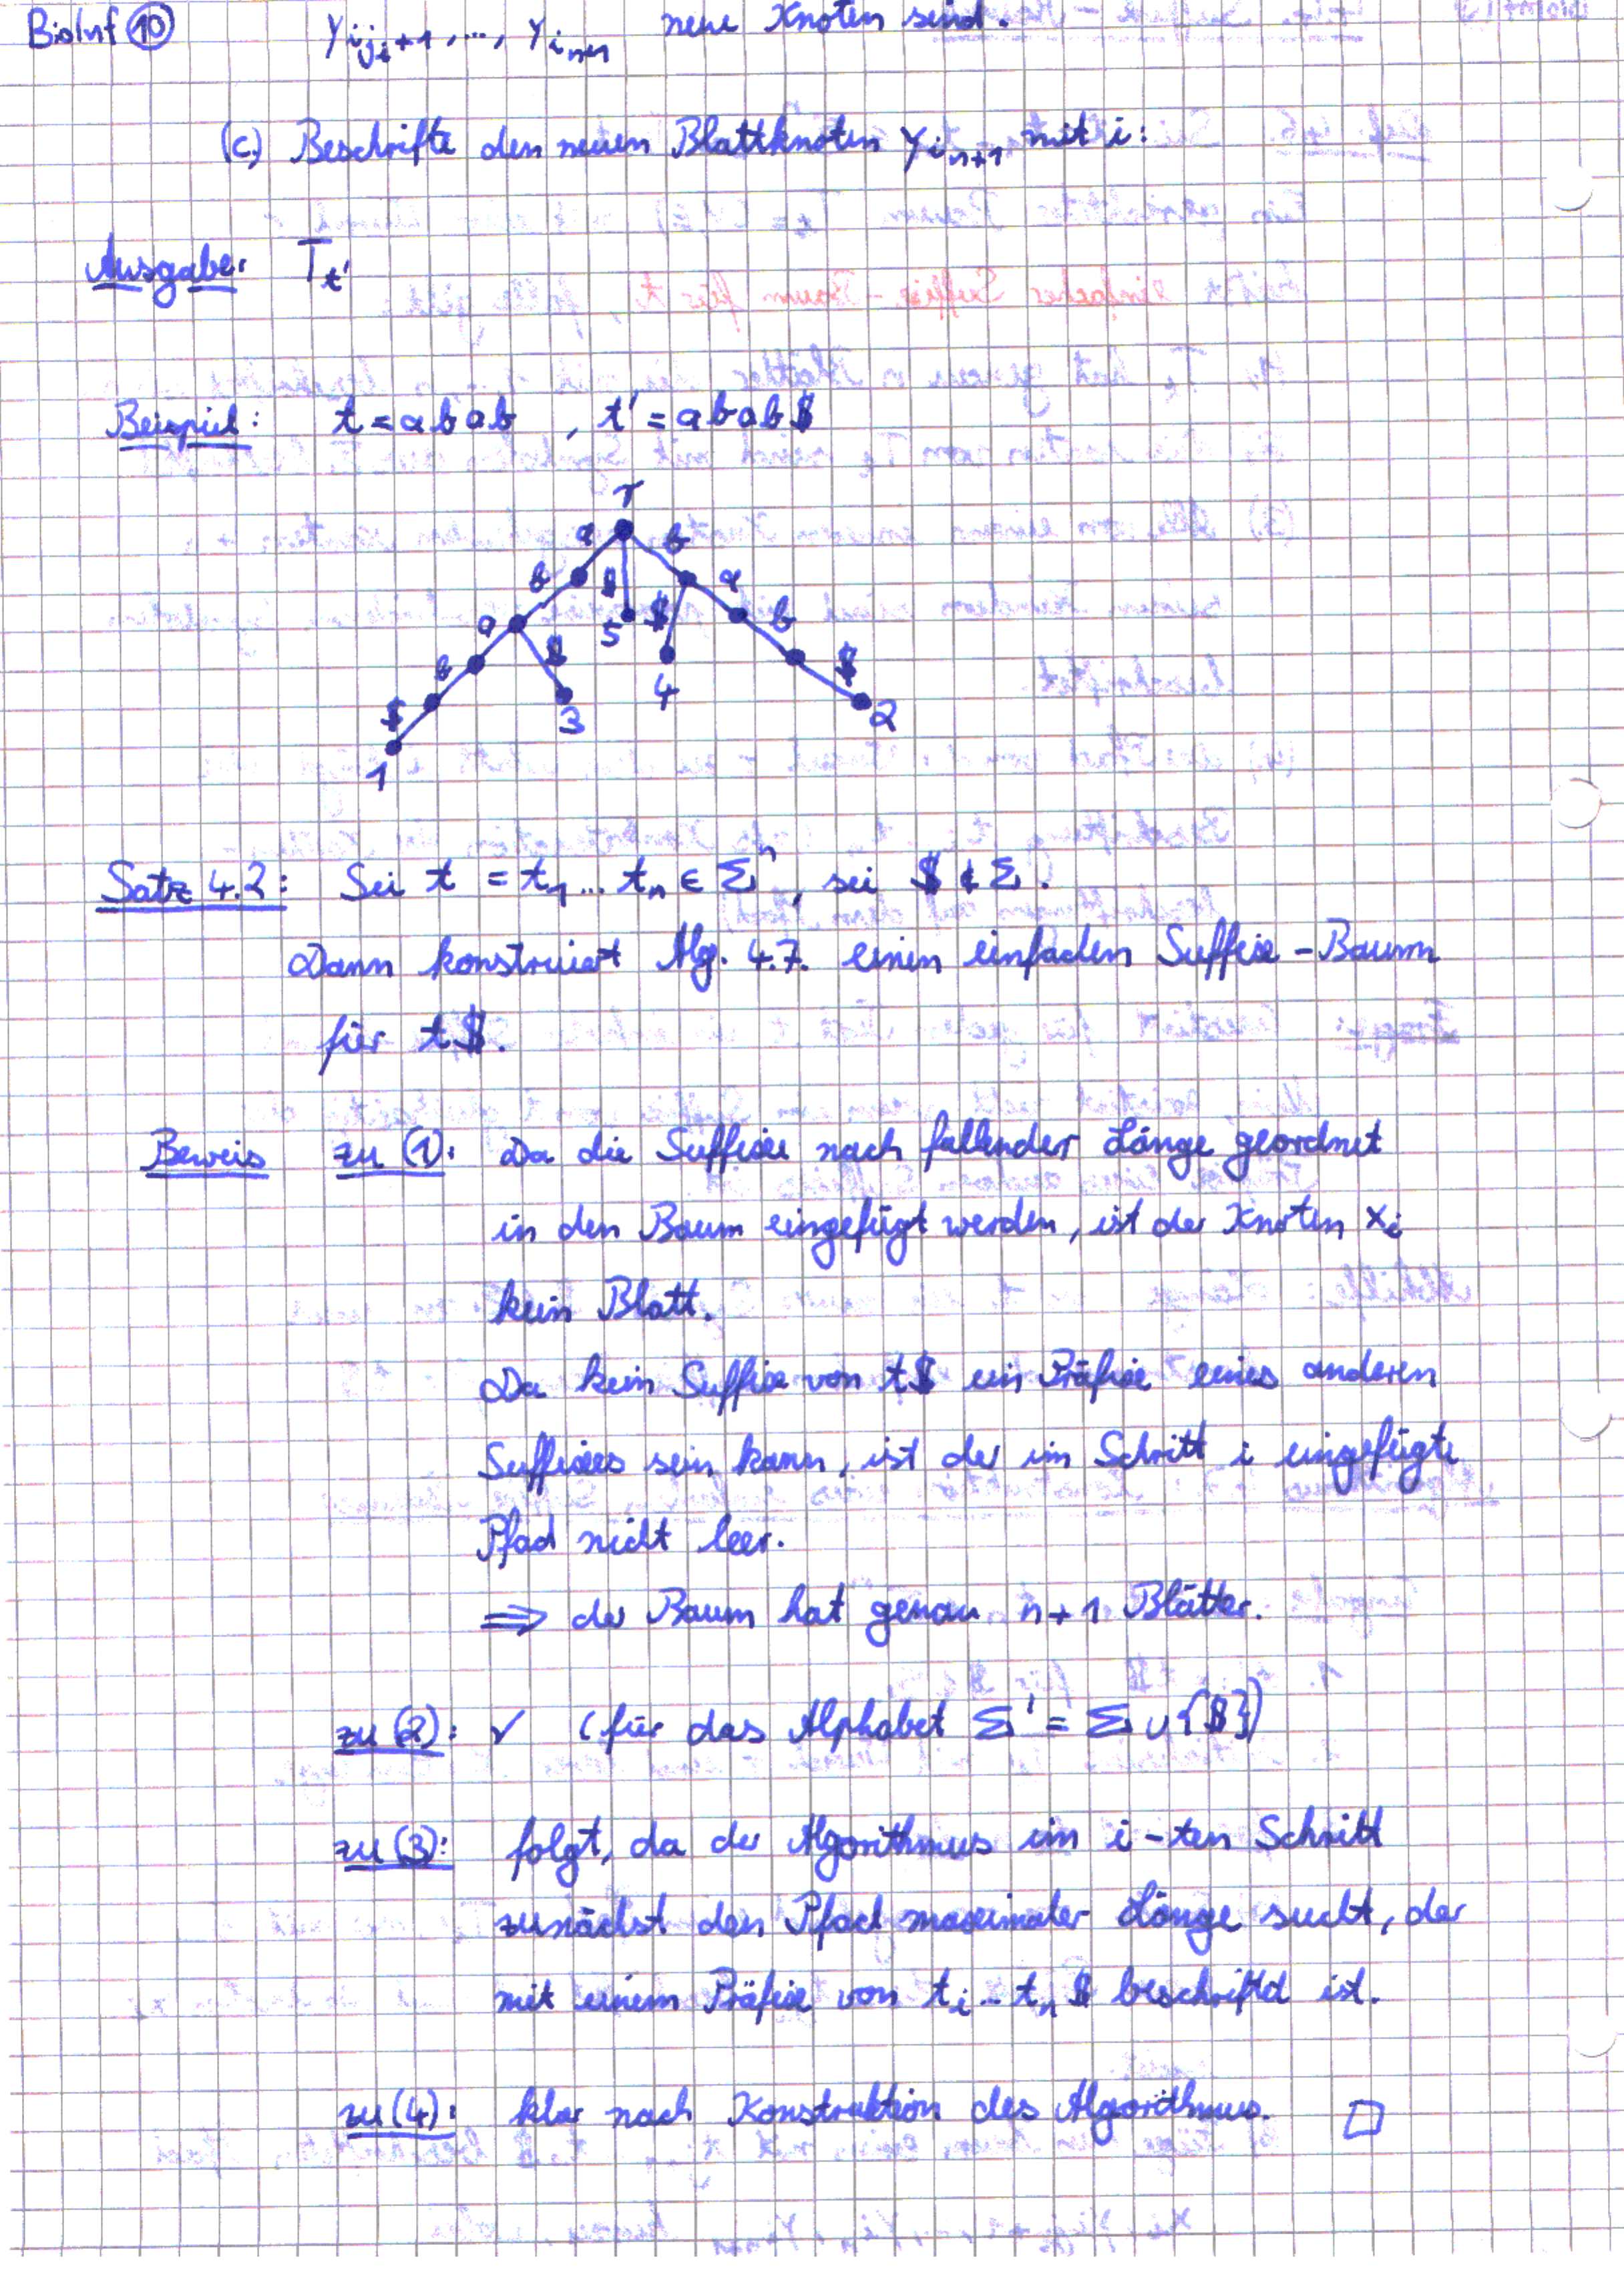 BioInf ⑩ y_{i_{j_i+1}}, ..., y_{i_{n+1}} neue Knoten sind.
(c) Beschrifte den neuen Blattknoten y_{i_{n+1}} mit i:
Ausgabe: T_{t'}
Beispiel: t = abab , t' = abab$
r
a b
b $ a
a 5 $ b
b $ 4 $
$ 3 2
1
Satz 4.2: Sei t = t_1 ... t_n ∈ Σ^n, sei $ ∉ Σ.
Dann konstruiert Alg. 4.7. einen einfachen Suffix-Baum
für t$.
Beweis zu (1): Da die Suffixe nach fallender Länge geordnet
in den Baum eingefügt werden, ist der Knoten x_i
kein Blatt.
Da kein Suffix von t$ ein Präfix eines anderen
Suffixes sein kann, ist der im Schritt i eingefügte
Pfad nicht leer.
⟹ der Baum hat genau n+1 Blätter.
zu (2): ✓ (für das Alphabet Σ' = Σ ∪ {$})
zu (3): folgt, da der Algorithmus im i-ten Schritt
zunächst den Pfad maximaler Länge sucht, der
mit einem Präfix von t_i ... t_n $ beschriftet ist.
zu (4): klar nach Konstruktion des Algorithmus. □